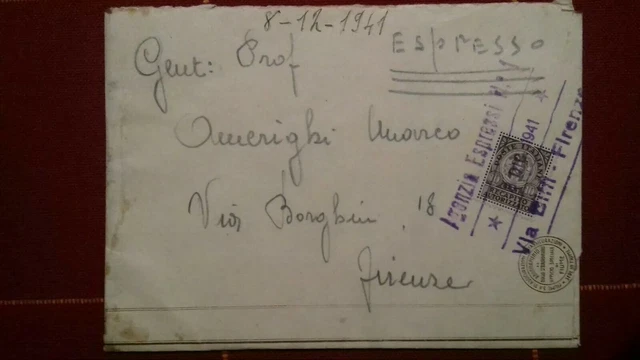 8-12-1941
ESPRESSO
Gent: Prof
Amerighi Marco
Via Borghini 18
Firenze
Agenzia Espressi N. 1
1941
Via - Firenze